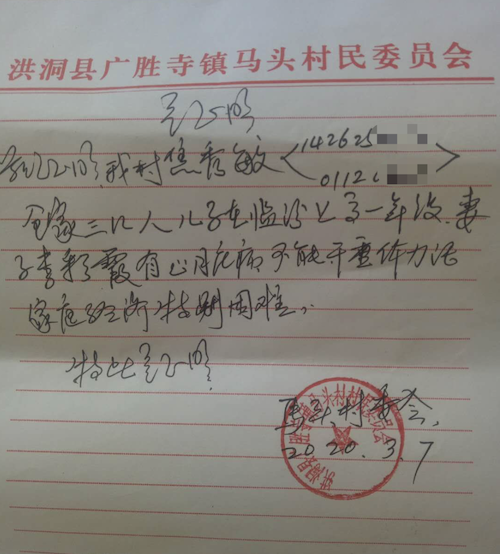 洪洞县广胜寺镇马头村民委员会
证明
兹证明我村焦秀敏 142625
0112
全家三口人儿子在临汾上高一年级,妻
子李彩霞有心脏病不能干重体力活
家庭经济特别困难。
特此证明
马头村委会
2020.3.7